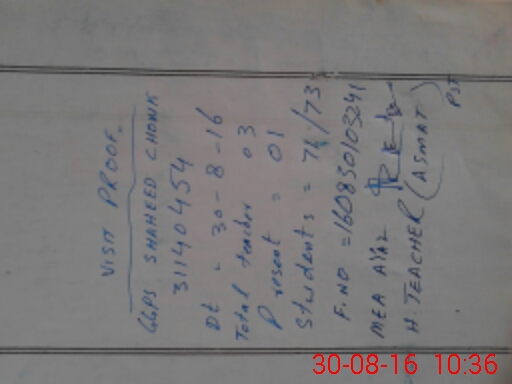 VISIT PROOF.
GGPS SHAHEED CHOWK
31140454
Dt - 30-8-16
Total teacher 03
Present = 01
Students = 71/73
F.NO =160830103241
MEA AYAZ
H.TEACHER (ASMAT)
PST
30-08-16 10:36